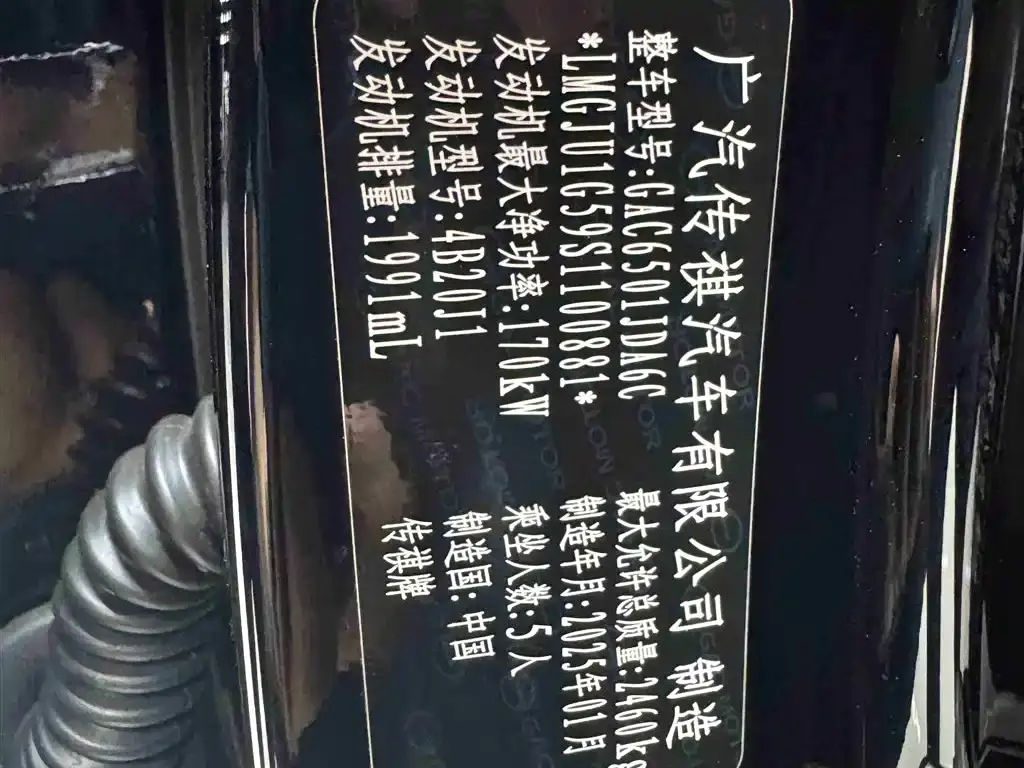 广汽传祺汽车有限公司 制造
整车型号:GAC6501JDA6C 最大允许总质量:2460kg
*LMGJU1G59S1100881* 制造年月:2025年01月
发动机最大净功率:170kW 乘坐人数:5人
发动机型号:4B20J1 制造国:中国
发动机排量:1991mL 传祺牌